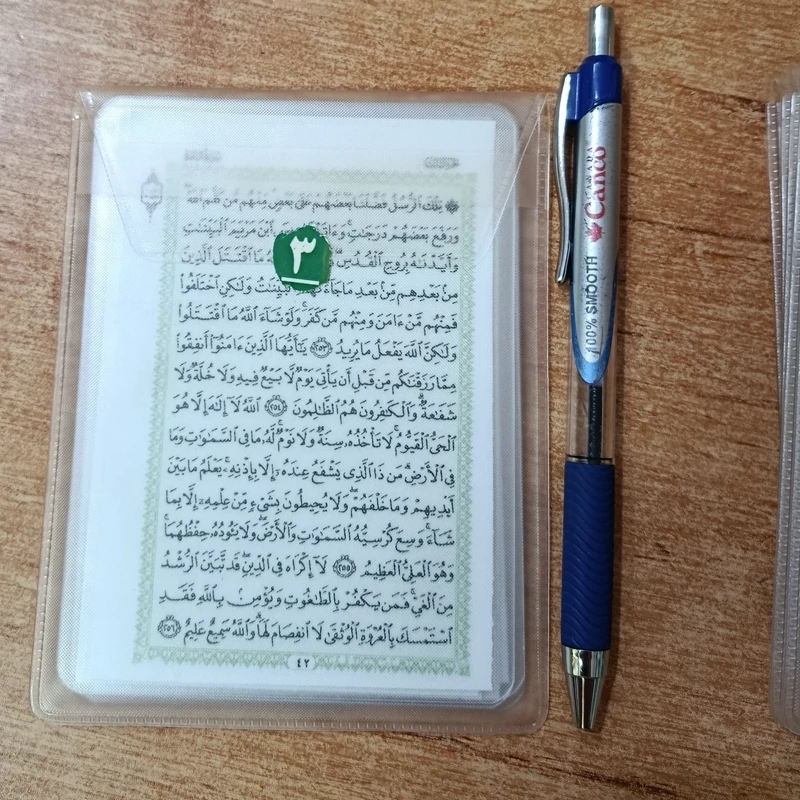 تِلْكَ الرُّسُلُ فَضَّلْنَا بَعْضَهُمْ عَلَىٰ بَعْضٍ مِّنْهُم مَّن كَلَّمَ اللَّهُ
وَرَفَعَ بَعْضَهُمْ دَرَجَاتٍ ابْنَ مَرْيَمَ الْبَيِّنَاتِ
٣
وَأَيَّدْنَاهُ بِرُوحِ الْقُدُسِ مَا اقْتَتَلَ الَّذِينَ
مِنْ بَعْدِهِم مِّنْ بَعْدِ مَا جَاءَتْهُمُ الْبَيِّنَاتُ وَلَٰكِنِ اخْتَلَفُوا
فَمِنْهُم مَّنْ ءَامَنَ وَمِنْهُم مَّن كَفَرَ وَلَوْ شَاءَ اللَّهُ مَا اقْتَتَلُوا
وَلَٰكِنَّ اللَّهَ يَفْعَلُ مَا يُرِيدُ ٢٥٣ يَا أَيُّهَا الَّذِينَ ءَامَنُوا أَنفِقُوا
مِمَّا رَزَقْنَاكُم مِّن قَبْلِ أَن يَأْتِيَ يَوْمٌ لَّا بَيْعٌ فِيهِ وَلَا خُلَّةٌ وَلَا
شَفَاعَةٌ وَالْكَافِرُونَ هُمُ الظَّالِمُونَ ٢٥٤ اللَّهُ لَا إِلَٰهَ إِلَّا هُوَ
الْحَيُّ الْقَيُّومُ لَا تَأْخُذُهُ سِنَةٌ وَلَا نَوْمٌ لَّهُ مَا فِي السَّمَاوَاتِ وَمَا
فِي الْأَرْضِ مَن ذَا الَّذِي يَشْفَعُ عِندَهُ إِلَّا بِإِذْنِهِ يَعْلَمُ مَا بَيْنَ
أَيْدِيهِمْ وَمَا خَلْفَهُمْ وَلَا يُحِيطُونَ بِشَيْءٍ مِّنْ عِلْمِهِ إِلَّا بِمَا
شَاءَ وَسِعَ كُرْسِيُّهُ السَّمَاوَاتِ وَالْأَرْضَ وَلَا يَئُودُهُ حِفْظُهُمَا
وَهُوَ الْعَلِيُّ الْعَظِيمُ ٢٥٥ لَا إِكْرَاهَ فِي الدِّينِ قَد تَّبَيَّنَ الرُّشْدُ
مِنَ الْغَيِّ فَمَن يَكْفُرْ بِالطَّاغُوتِ وَيُؤْمِن بِاللَّهِ فَقَدِ
اسْتَمْسَكَ بِالْعُرْوَةِ الْوُثْقَىٰ لَا انفِصَامَ لَهَا وَاللَّهُ سَمِيعٌ عَلِيمٌ ٢٥٦
٤٢
CANADA
Canco
100% SMOOTH